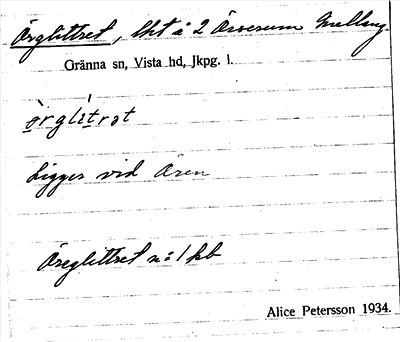 Örglittret, lht å 2 Örserum Mellang.
Gränna sn, Vista hd, Jkpg. l.
örglitrət
Ligger vid Ören
Öreglittret n:1 kb
Alice Petersson 1934.